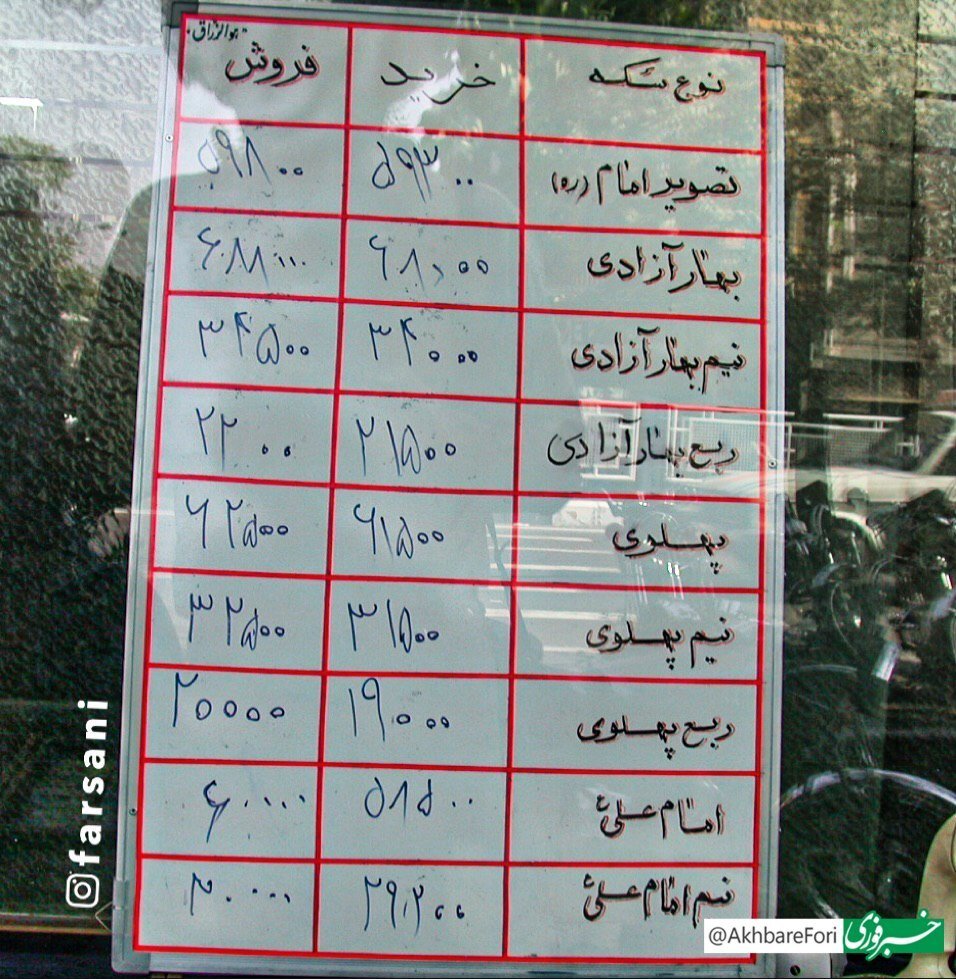 هوالرزاق
نوع سکه خرید فروش
تصویر امام (ره) ۵۹۳۰۰ ۵۹۸۰۰
بهار آزادی ۶۸۰۰۰
نیم بهار آزادی ۳۴۰۰۰ ۳۴۵۰۰
ربع بهار آزادی ۲۱۵۰۰
پهلوی ۶۱۵۰۰ ۶۲۵۰۰
نیم پهلوی ۳۱۵۰۰ ۳۲۵۰۰
ربع پهلوی ۱۹۰۰۰ ۲۰۰۰۰
امام علیؑ ۵۸۵۰۰ ۶۰۰۰۰
نیم امام علیؑ ۲۹۲۰۰
farsani
@AkhbareFori خبرفوری